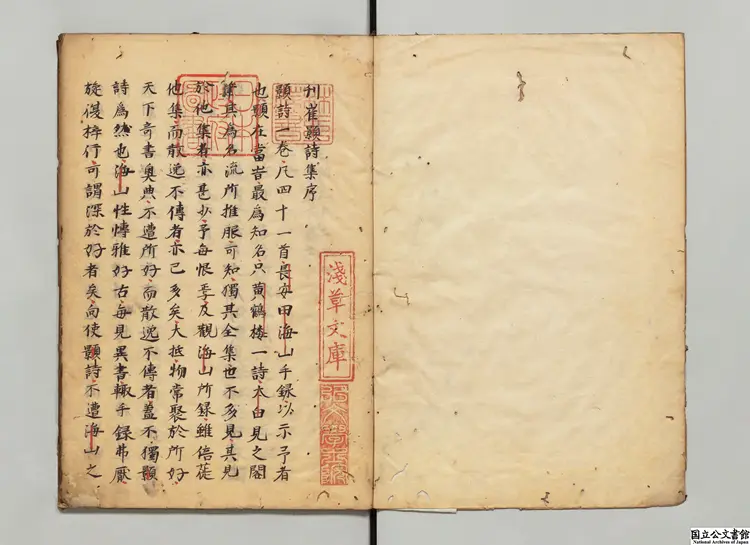 刊崔顥詩集序
顥詩一卷凡四十一首長安田海山手録以示予者
也顥在當旹最為知名只黄鶴樓一詩太白見之閣
筆其為名流所推服可知獨其全集也不多見其見
於他集者亦甚少予每恨焉及觀海山所録雖倍蓰
他集而散逸不傳者亦已多矣大抵物常聚於所好
天下奇書奥典不遭所好而散逸不傳者盖不獨顥
詩為然也海山性愽雅好古每見異書輙手録弗厭
旋復梓行可謂深於好者矣向使顥詩不遭海山之
淺草文庫
国立公文書館
National Archives of Japan